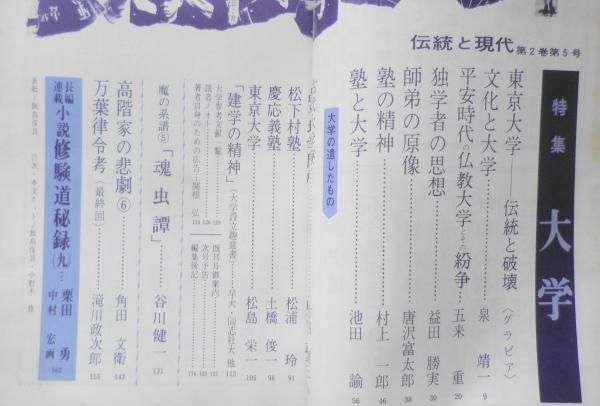 伝統と現代 第2巻第5号
特集 大学
東京大学――伝統と破壊 〈グラビア〉
文化と大学 泉 靖一 9
平安時代の仏教大学とその紛争 五来 重 20
独学者の思想 益田 勝実 30
師弟の原像 唐沢富太郎 38
塾の精神 村上 一郎 46
塾と大学 池田 諭 56
大学の遺したもの
松下村塾 松浦 玲 91
慶応義塾 土橋 俊一 98
東京大学 松島 栄一 105
「建学の精神」(大学設立趣意書) 早大・同志社大 他 113
大学参考文献一覧
読者ノオト
著者自身のための広告―関根 弘
既刊号御案内
次号予告
編集後記
魔の系譜⑤「魂虫譚」 谷川健一 131
高階家の悲劇⑥ 角田 文衛 143
万葉律令考(最終回) 滝川政次郎 155
長編連載小説 修験道秘録(九) 栗田 勇
中村 宏画 162